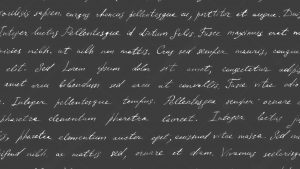 sapien congue rhoncus pellentesque eu, porttitor et augue.
luctus Pellentesque id dictum felis. Fusce maximus erat
nibh ut nibh non mattis. Cras sed semper mauris, congue
elit. Sed Lorem ipsum dolor sit amet, consectetur
amet arcu bibendum sed arcu at convallis. Fusce vitae odio
Integer pellentesque tempus. Pellentesque semper ornare
pharetra elementum pharetra laoreet. Integer lectus
pharetra elementum auctor eget, euismod vitae massa. Sed
nibh, ac mattis sed, ornare et diam. Vivamus scelerisque